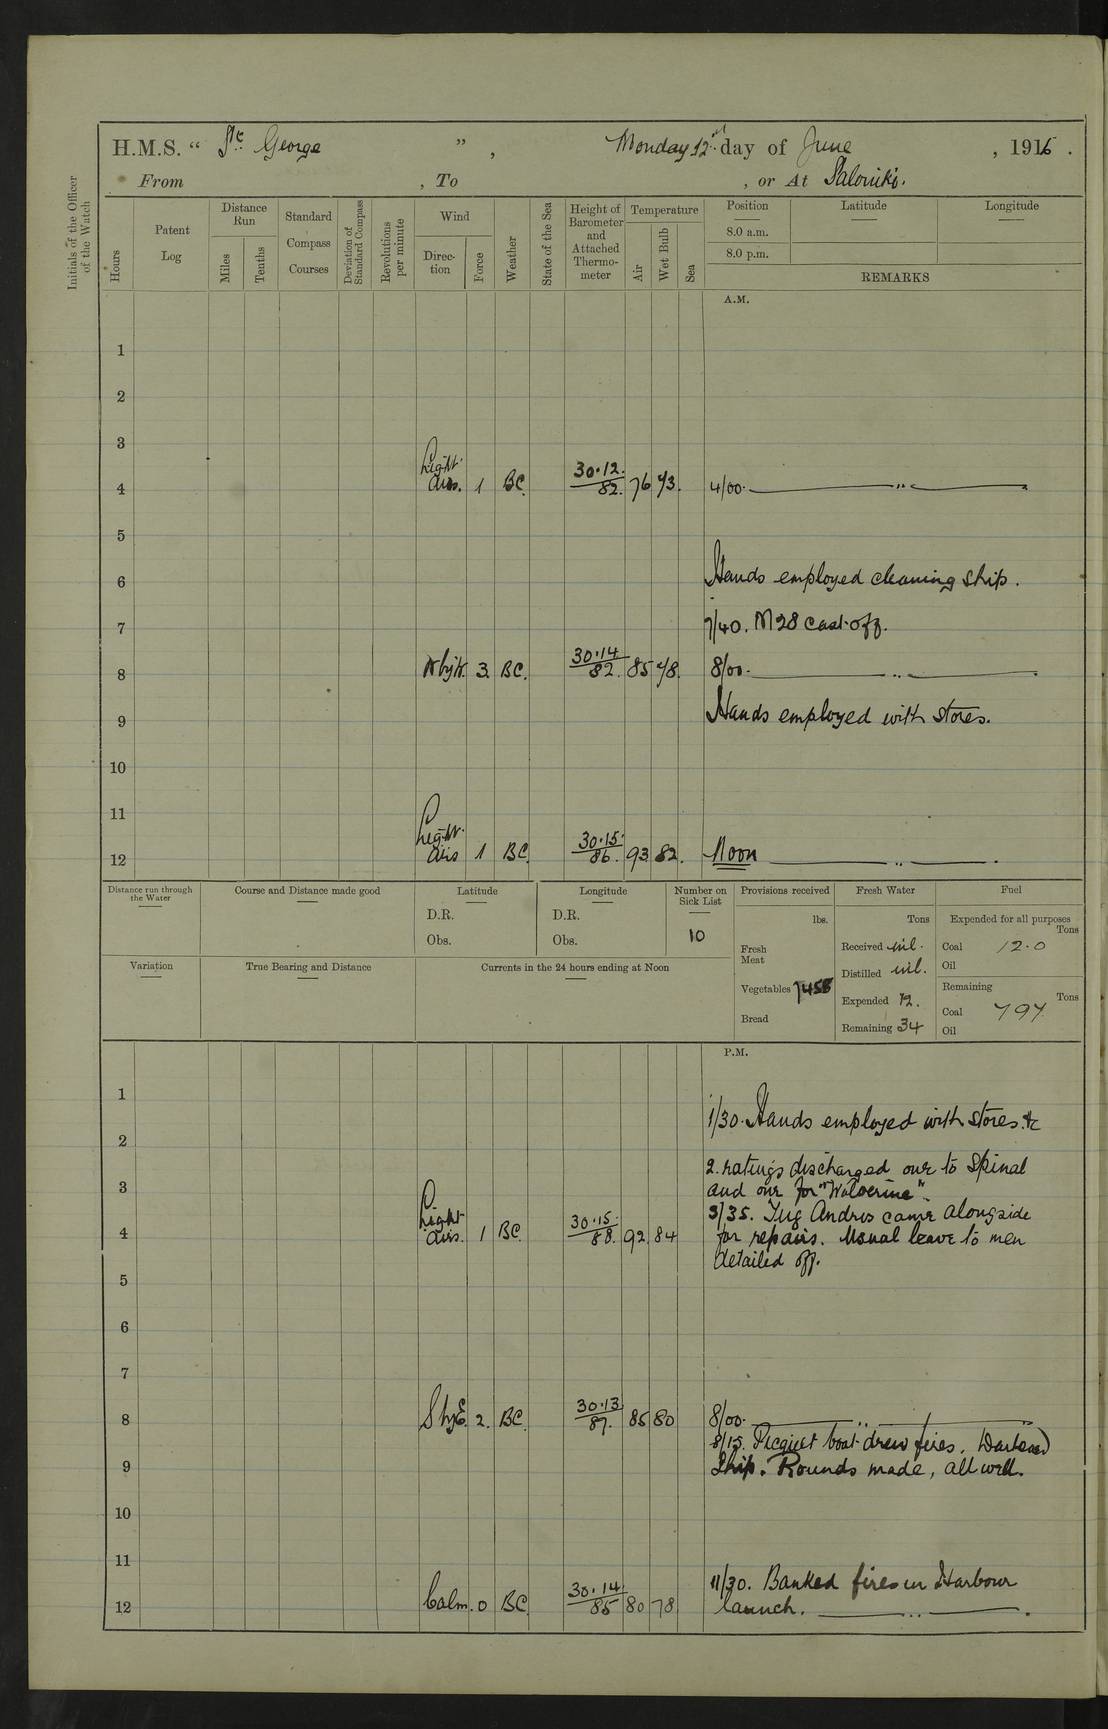 H.M.S. “ St. George ”, Monday 12th day of June, 1916.
From , To , or At Salonika.
Initials of the Officer of the Watch
Hours
Patent Log
Distance Run
Miles
Tenths
Standard Compass Courses
Deviation of Standard Compass
Revolutions per minute
Wind
Direction
Force
Weather
State of the Sea
Height of Barometer and Attached Thermometer
Temperature
Air
Wet Bulb
Sea
Position Latitude Longitude
8.0 a.m.
8.0 p.m.
REMARKS
A.M.
1
2
3
4 Light airs. 1 BC. 30.12. 82. 76 73. 4/00. ——— " ———
5
6 Hands employed cleaning ship.
7 7/40. M28 cast off.
8 N by W. 3. BC. 30.14. 82. 85 78. 8/00. ——— " ———
9 Hands employed with stores.
10
11
12 Light airs 1 BC. 30.15. 86. 93. 82. Noon ——— " ———
Distance run through the Water
Course and Distance made good
Latitude
D.R.
Obs.
Longitude
D.R.
Obs.
Number on Sick List
10
Provisions received
lbs.
Fresh Meat
Vegetables 1458
Bread
Fresh Water
Tons
Received nil.
Distilled nil.
Expended 12.
Remaining 34
Fuel
Expended for all purposes
Tons
Coal 12.0
Oil
Remaining
Tons
Coal 797
Oil
Variation
True Bearing and Distance
Currents in the 24 hours ending at Noon
P.M.
1 1/30. Hands employed with stores. &c
2 2. ratings discharged one to Spinal
3 and one for "Wolverine".
3/35. Tug Andros came alongside
4 Light airs. 1 BC. 30.15. 88. 92. 84 for repairs. Usual leave to men
detailed off.
5
6
7
8 S by E. 2. BC. 30.13 87. 85 80 8/00. ——— " ———
8/15. Picquet boat drew fires. Darkened
9 Ship. Rounds made, all well.
10
11 11/30. Banked fires in Harbour
12 Calm. 0 BC. 30.14. 85 80 78 launch. ——— " ———